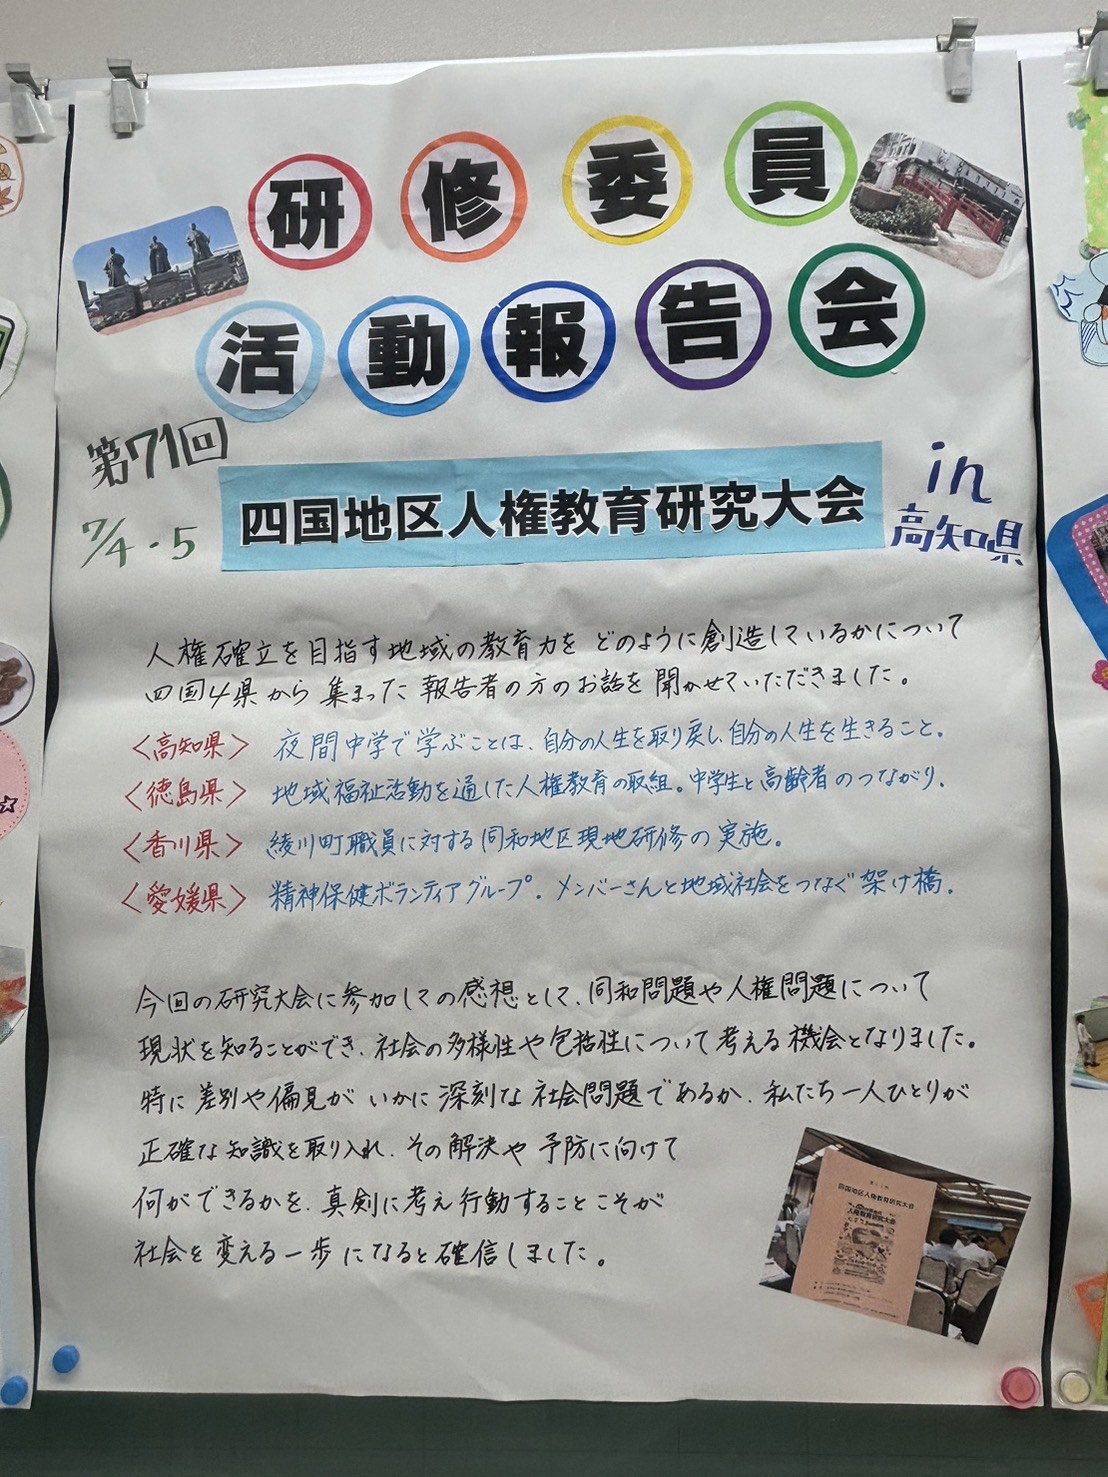 研修委員
活動報告会
第71回
7/4・5
四国地区人権教育研究大会
in
高知県
人権確立を目指す地域の教育力を どのように創造しているかについて
四国4県から 集まった 報告者の方のお話を 聞かせていただきました。
〈高知県〉 夜間中学で学ぶことは、自分の人生を取り戻し、自分の人生を生きること。
〈徳島県〉 地域福祉活動を通した人権教育の取組。中学生と高齢者のつながり。
〈香川県〉 綾川町職員に対する同和地区現地研修の実施。
〈愛媛県〉 精神保健ボランティアグループ。メンバーさんと地域社会をつなぐ架け橋。
今回の研究大会に参加しての感想として、同和問題や人権問題について
現状を知ることができ、社会の多様性や包括性について考える機会となりました。
特に差別や偏見がいかに深刻な社会問題であるか、私たち一人ひとりが
正確な知識を取り入れ、その解決や予防に向けて
何ができるかを、真剣に考え行動することこそが
社会を変える一歩になると確信しました。
四国地区人権教育研究大会
人権教育研究大会